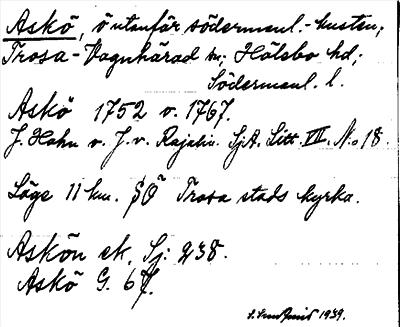 Askö, ö utanför södermanl.-kusten;
Trosa-Vagnhärad sn; Hölebo hd;
Södermanl. l.
Askö 1752 o. 1767.
J. Hahn o. J. v. Rajalin. SjA. Litt. VII. No 18.
Läge 11 km. SÖ Trosa stads kyrka.
Askön ek. Sj: 238.
Askö G. 67.
1939.